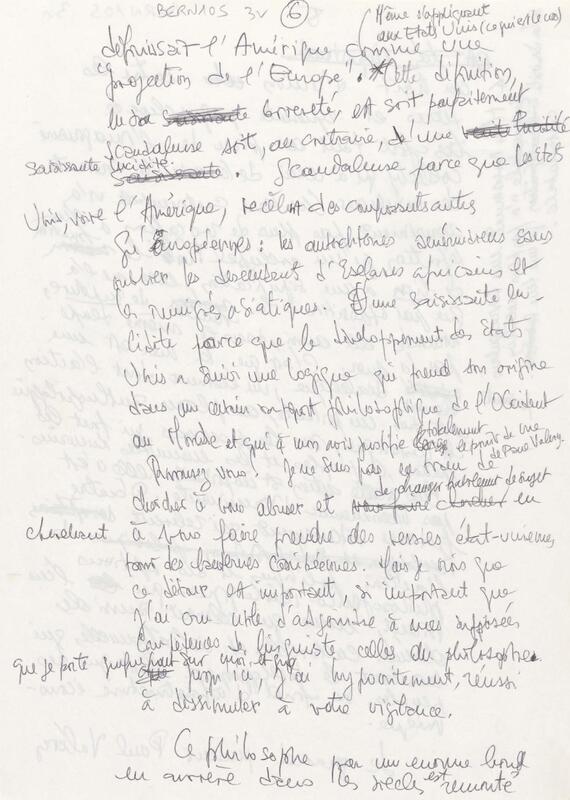 BERNIOS 3V 6
Même s'appliquant
aux Etats Unis (ce qui est le cas)
définissait l'Amérique comme une
"projection de l'Europe". Cette définition,
en sa saisissante brièveté, est soit parfaitement
scandaleuse soit, au contraire, d'une
saisissante lucidité. Scandaleuse parce que les Etats
Unis, voire l'Amérique, recèlent des composants autres
qu'européennes : les autochtones amérindiens sans
oublier les descendants d'Esclaves africains et
les immigrés asiatiques. D'une saisissante lu-
cidité parce que le développement des Etats
Unis a suivi une logique qui prend son origine
dans un certain rapport philosophique de l'Occident
au Monde et qui à mon avis justifie totalement
le point de vue
de Paul Valéry.
Rassurez vous : je ne suis pas en train de
chercher à vous abuser et de changer
de sujet en
cherchant à vous faire prendre des vessies état-uniennes
pour des lanternes caribéennes. Mais je crois que
ce détour est important, si important que
j'ai cru utile d'adjoindre à mes supposées
compétences de linguiste celles du philosophe
que je porte en moi et que
jusqu'ici, j'ai hypocritement, réussi
à dissimuler à votre vigilance.
Ce philosophe par un énorme bond
en arrière dans les siècles est remonté